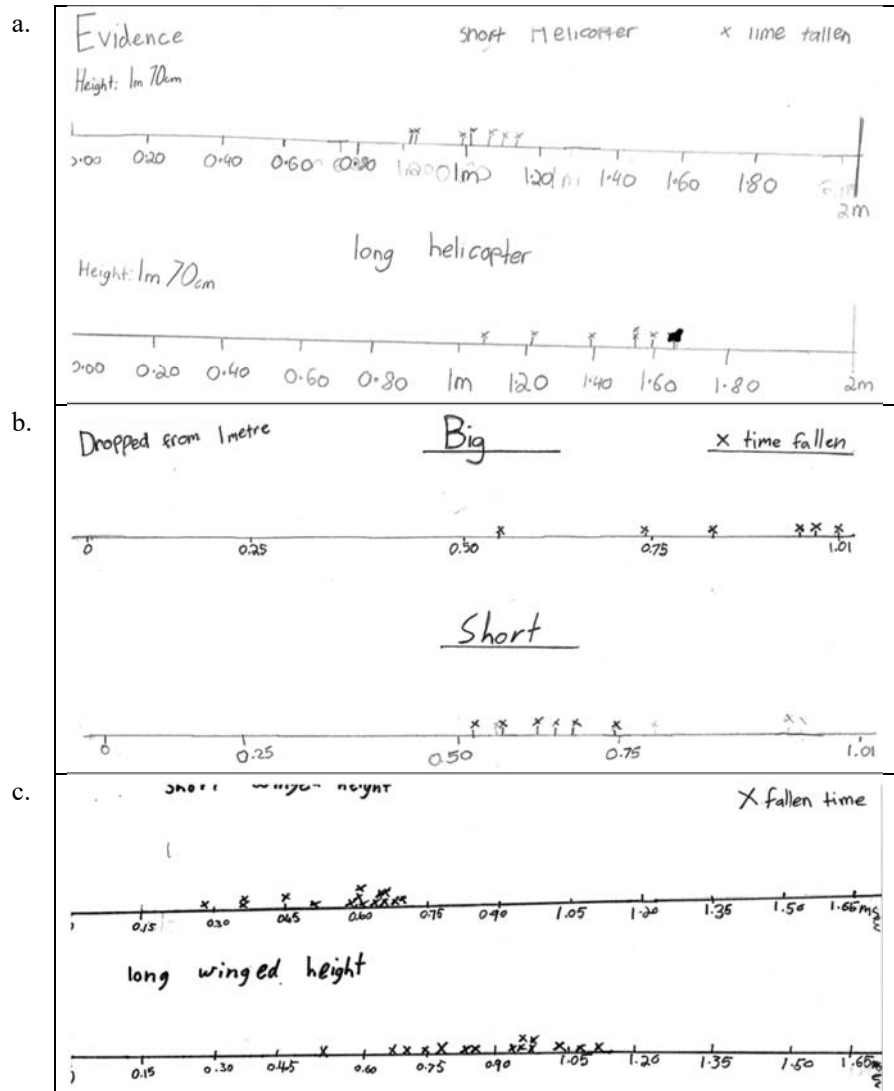 a.
Evidence short Helicopter × time fallen
Height: 1m 70cm
0.00 0.20 0.40 0.60 0.80 1m 1.20 1.40 1.60 1.80
2m
long helicopter
Height: 1m 70cm
0.00 0.20 0.40 0.60 0.80 1m 1.20 1.40 1.60 1.80 2m
b.
Dropped from 1 metre Big × time fallen
0 0.25 0.50 0.75 1.01
Short
0 0.25 0.50 0.75 1.01
c.
short winged height X fallen time
0.15 0.30 0.45 0.60 0.75 0.90 1.05 1.20 1.35 1.50 1.65ms
long winged height
0.15 0.30 0.45 0.60 0.75 0.90 1.05 1.20 1.35 1.50 1.65ms